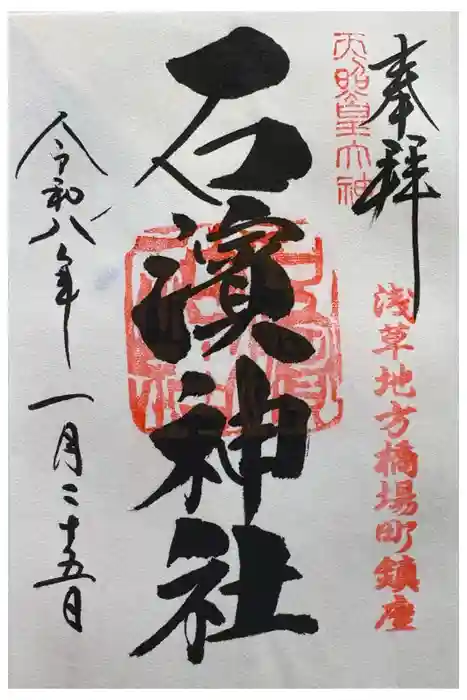 奉拝
天照皇大神
浅草地方橋場町鎮座
石濱神社
令和八年一月二十五日